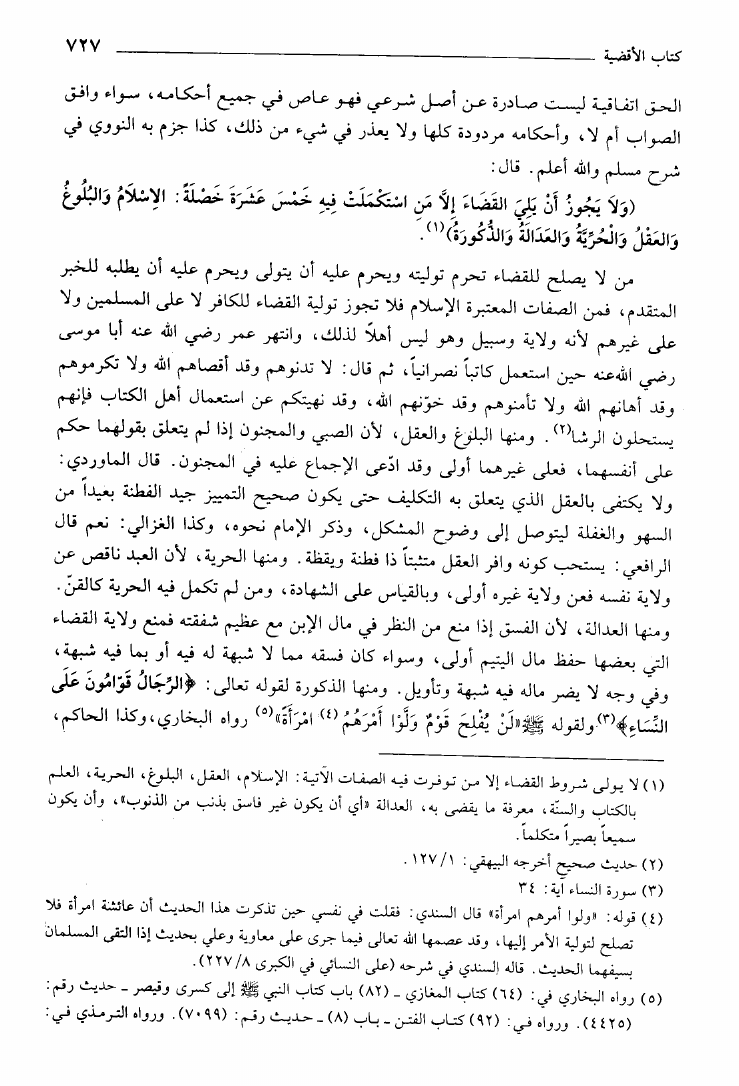 كتاب الأقضية ٧٢٧
الحق اتفاقية ليست صادرة عن أصل شرعي فهو عاص في جميع أحكامه، سواء وافق
الصواب أم لا، وأحكامه مردودة كلها ولا يعذر في شيء من ذلك، كذا جزم به النووي في
شرح مسلم والله أعلم. قال:
(وَلَا يَجُوزُ أَنْ يَلِيَ القَضَاءَ إِلاَّ مَنِ اسْتَكْمَلَتْ فِيهِ خَمْسَ عَشَرَةَ خَصْلَةً: الإسْلَامُ وَالبُلُوغُ
وَالعَقْلُ وَالْحُرِّيَّةُ وَالعَدَالَةُ وَالذُّكُورَةُ)(١).
من لا يصلح للقضاء تحرم توليته ويحرم عليه أن يتولى ويحرم عليه أن يطلبه للخبر
المتقدم، فمن الصفات المعتبرة الإسلام فلا تجوز تولية القضاء للكافر لا على المسلمين ولا
على غيرهم لأنه ولاية وسبيل وهو ليس أهلاً لذلك، وانتهر عمر رضي الله عنه أبا موسى
رضي اللهعنه حين استعمل كاتباً نصرانياً، ثم قال: لا تدنوهم وقد أقصاهم الله ولا تكرموهم
وقد أهانهم الله ولا تأمنوهم وقد خوّنهم الله، وقد نهيتكم عن استعمال أهل الكتاب فإنهم
يستحلون الرشا(٢). ومنها البلوغ والعقل، لأن الصبي والمجنون إذا لم يتعلق بقولهما حكم
على أنفسهما، فعلى غيرهما أولى وقد ادّعى الإجماع عليه في المجنون. قال الماوردي:
ولا يكتفى بالعقل الذي يتعلق به التكليف حتى يكون صحيح التمييز جيد الفطنة بعيداً من
السهو والغفلة ليتوصل إلى وضوح المشكل، وذكر الإمام نحوه، وكذا الغزالي: نعم قال
الرافعي: يستحب كونه وافر العقل متثبتاً ذا فطنة ويقظة. ومنها الحرية، لأن العبد ناقص عن
ولاية نفسه فعن ولاية غيره أولى، وبالقياس على الشهادة، ومن لم تكمل فيه الحرية كالقنّ.
ومنها العدالة، لأن الفسق إذا منع من النظر في مال الإبن مع عظيم شفقته فمنع ولاية القضاء
التي بعضها حفظ مال اليتيم أولى، وسواء كان فسقه مما لا شبهة له فيه أو بما فيه شبهة،
وفي وجه لا يضر ماله فيه شبهة وتأويل. ومنها الذكورة لقوله تعالى: ﴿الرِّجَالُ قَوّامُونَ عَلَى
النِّسَاءِ﴾(٣).ولقوله ﷺ«لَنْ يُفْلِحَ قَوْمٌ وَلَّوْا أَمْرَهُمُ(٤) امْرَأَةً»(٥) رواه البخاري،وكذا الحاكم،
(١) لا يولى شروط القضاء إلا من توفرت فيه الصفات الآتية: الإسلام، العقل، البلوغ، الحرية، العلم
بالكتاب والسنّة، معرفة ما يقضى به، العدالة «أي أن يكون غير فاسق بذنب من الذنوب»، وأن يكون
سميعاً بصيراً متكلماً.
(٢) حديث صحيح أخرجه البيهقي: ١٢٧/١.
(٣) سورة النساء آية: ٣٤
(٤) قوله: «ولوا أمرهم امرأة» قال السندي: فقلت في نفسي حين تذكرت هذا الحديث أن عائشة امرأة فلا
تصلح لتولية الأمر إليها، وقد عصمها الله تعالى فيما جرى على معاوية وعلي بحديث إذا التقى المسلمان
بسيفهما الحديث. قاله السندي في شرحه (على النسائي في الكبرى ٢٢٧/٨).
(٥) رواه البخاري في: (٦٤) كتاب المغازي ـ (٨٢) باب كتاب النبي ﷺ إلى كسرى وقيصر ـ حديث رقم:
(٤٤٢٥). ورواه في: (٩٢) كتاب الفتن ـ باب (٨) ـ حديث رقم: (٧٠٩٩). ورواه الترمذي في: